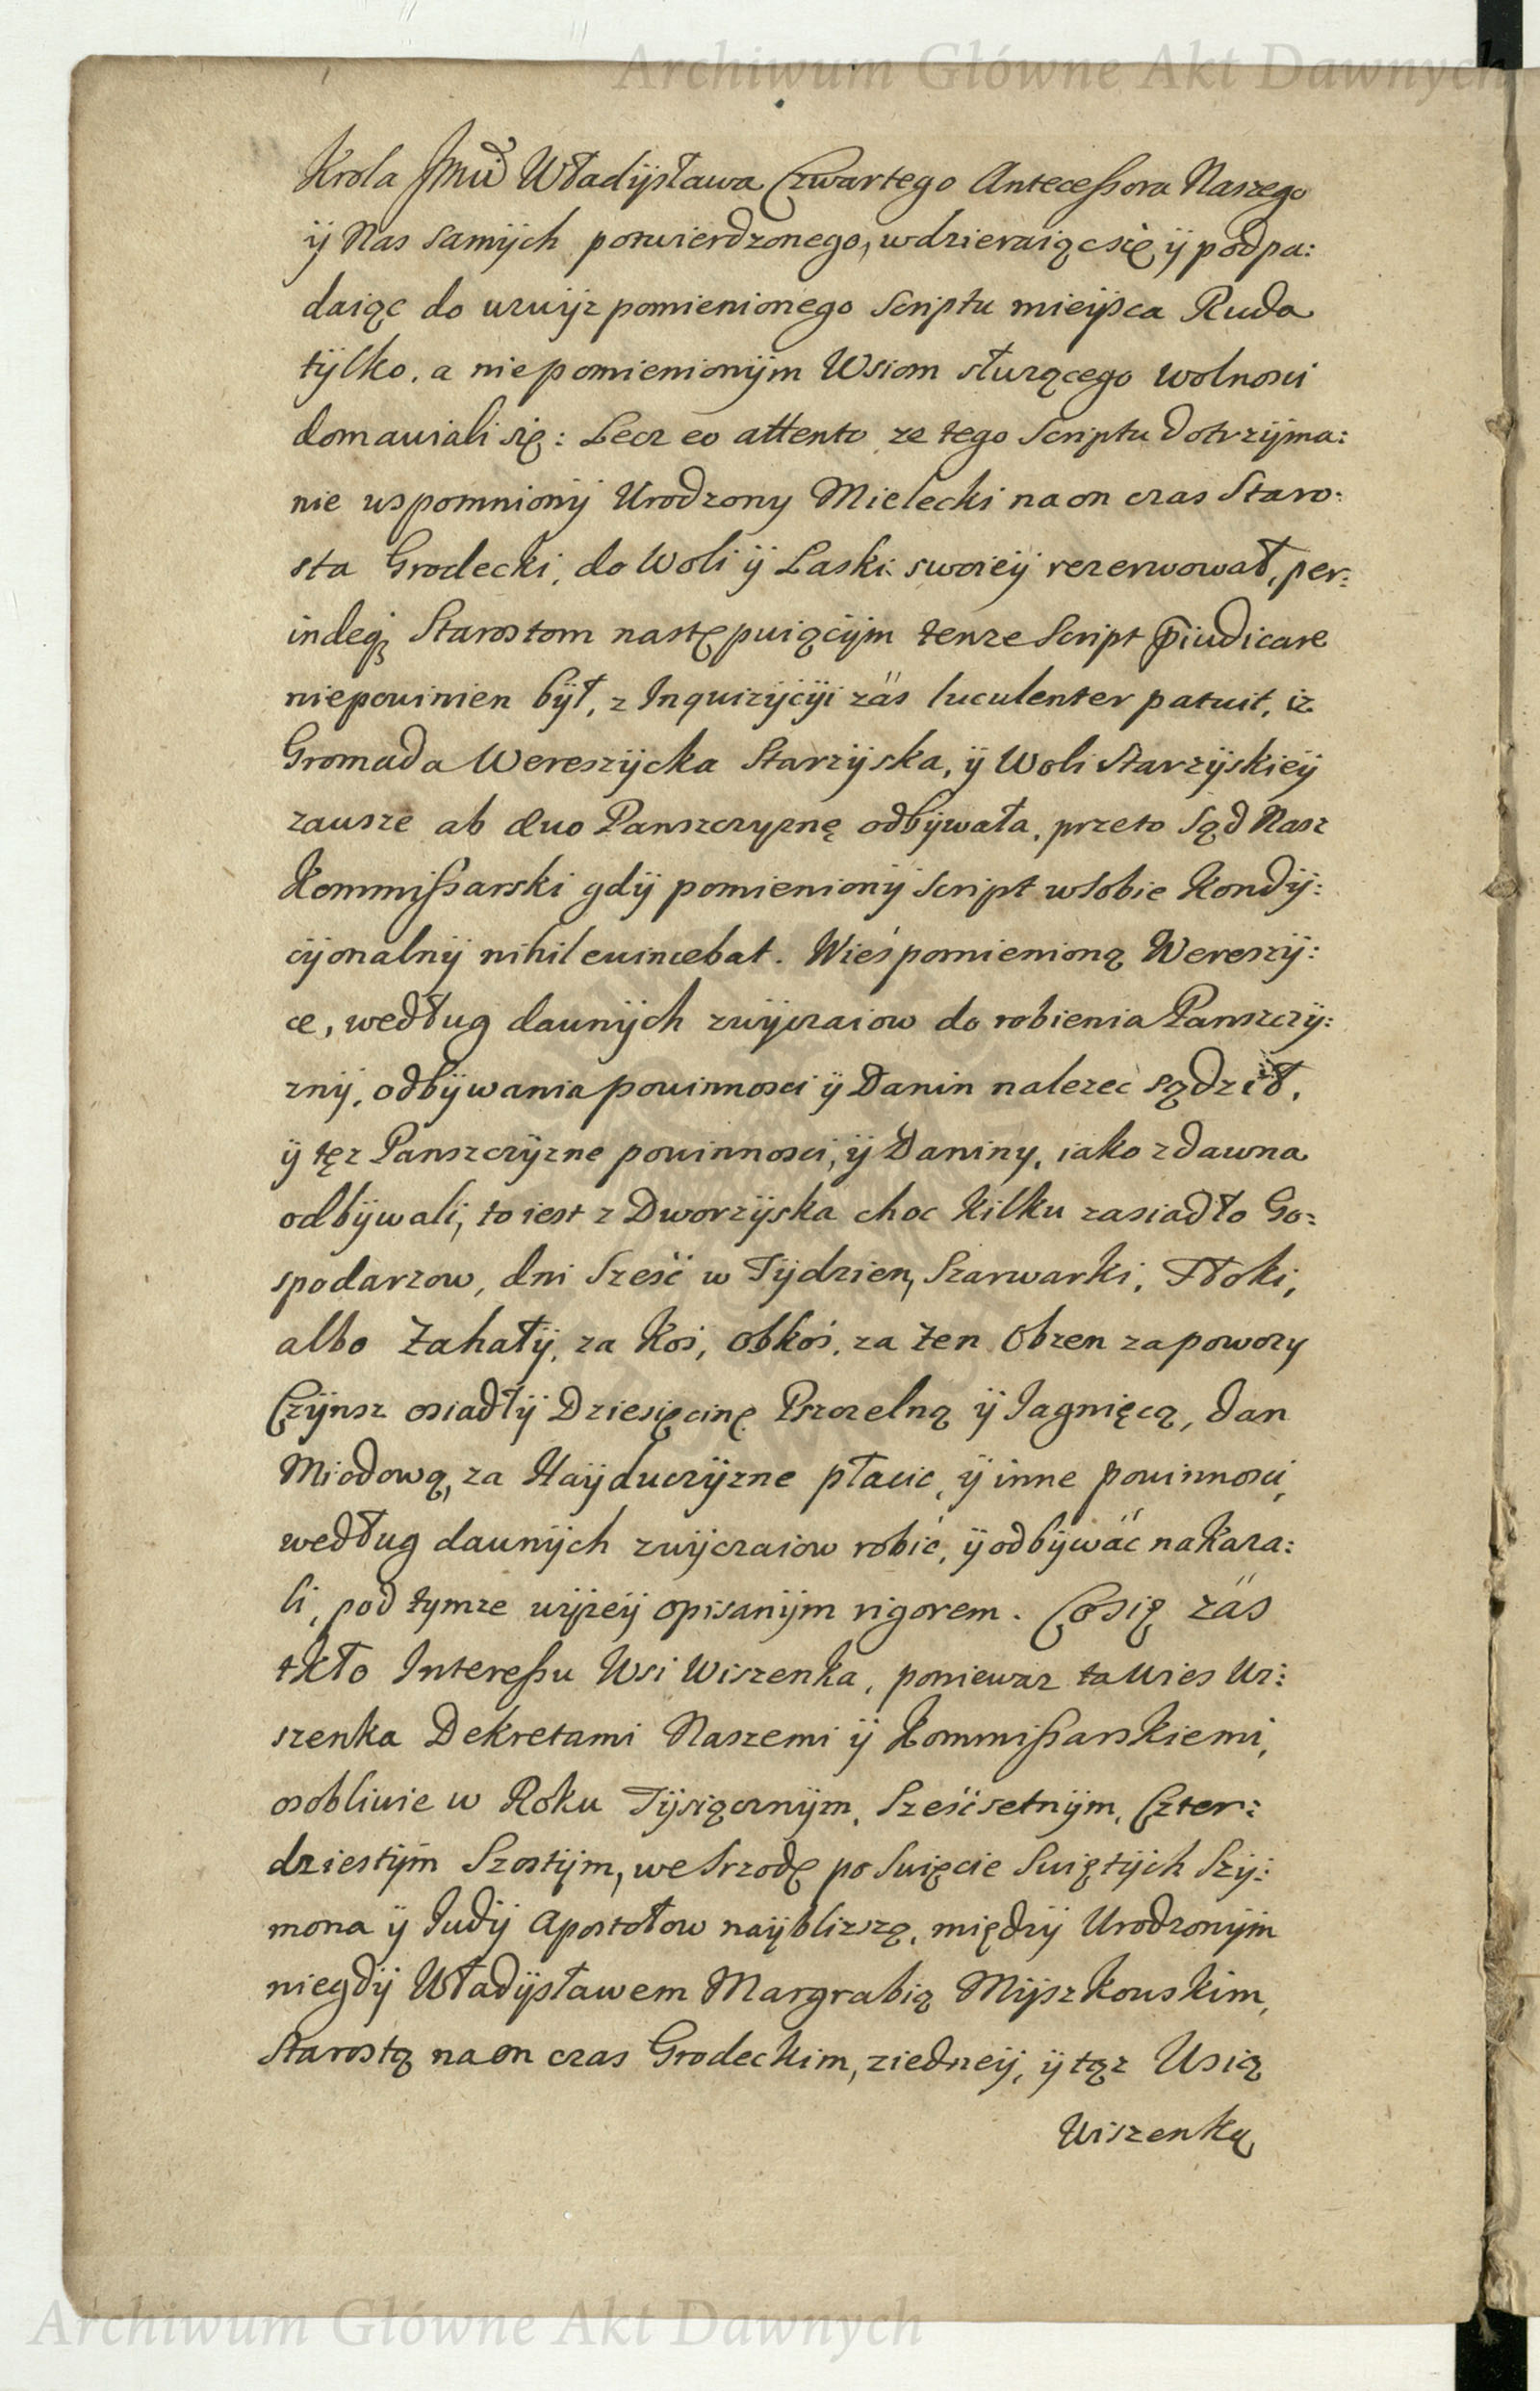 Archiwum Główne Akt Dawnych
Krola Jmci Władÿsława Czwartego Antecessora Naszego
ÿ Nas samÿch potwierdzonego, wdzieraiąc się ÿ podpa:
daiąc do wzwÿz pomienionego scriptu mieÿsca Ruda
tÿlko, a niepomienionÿm Wsiom słuzącego wolnosci
domawiali się: Lecz eo attento ze tego scriptu dotrzÿma:
nie wspomnionÿ Urodzony Mielecki na on czas Staro:
sta Grodecki, do Woli ÿ Laski swoieÿ rezerwował, per:
indeq3 Starostom następuiącÿm tenze Script p̄iudicare
niepowinien bÿł, z Inquizÿcÿi zäs luculenter patuit, iz
Gromada Wereszÿcka Starzÿska, ÿ Woli Starzÿskieÿ
zawsze ab æuo Panszczyznę odbÿwała, przeto Sąd Nasz
Kommissarski gdÿ pomienionÿ script wsobie Kondÿ:
cÿonalnÿ nihil euincebat. Wieś pomienioną Wereszÿ:
ce, według dawnÿch zwÿczaiow do robienia Panszczÿ:
znÿ, odbÿwania powinnosci ÿ Danin nalezeć sądził,
ÿ tęz Panszczÿzne powinnosci, ÿ Daniny, iako zdawna
odbÿwali, to iest z Dworzÿska choc kilku zasiadło Go:
spodarzow, dni sześć w Tÿdzien, Szarwarki, Tłoki,
albo Zahałÿ, za Koś, obkoś, za zen Obzen zapowozy
Czÿnsz osiadłÿ Dziesięcinę Pszczelną ÿ Jagnięcą, dan
Miodową, za Haÿduczÿzne płacic, ÿ inne powinnosci,
według dawnÿch zwÿczaiow robić, ÿ odbÿwać nakaza:
li, pod tymze wÿzeÿ opisanÿm rigorem. Co się zäs
tkło Interessu Wsi Wiszenka, poniewaz ta Wies Wi:
szenka Dekretami Naszemi ÿ Kommissarskiemi,
osobliwie w Roku Tÿsiącznÿm, Sześćsetnÿm, Czter:
dziestÿm Szostÿm, we srzodę po Swięcie Swiętÿch Szÿ:
mona ÿ Judÿ Apostołow naÿblizszą, międzÿ Urodzonÿm
niegdÿ Władÿsławem Margrabią Mÿszkowskim,
Starostą na on czas Grodeckim, ziedneÿ, ÿ tąz Wsią
Wiszenką
Archiwum Główne Akt Dawnych